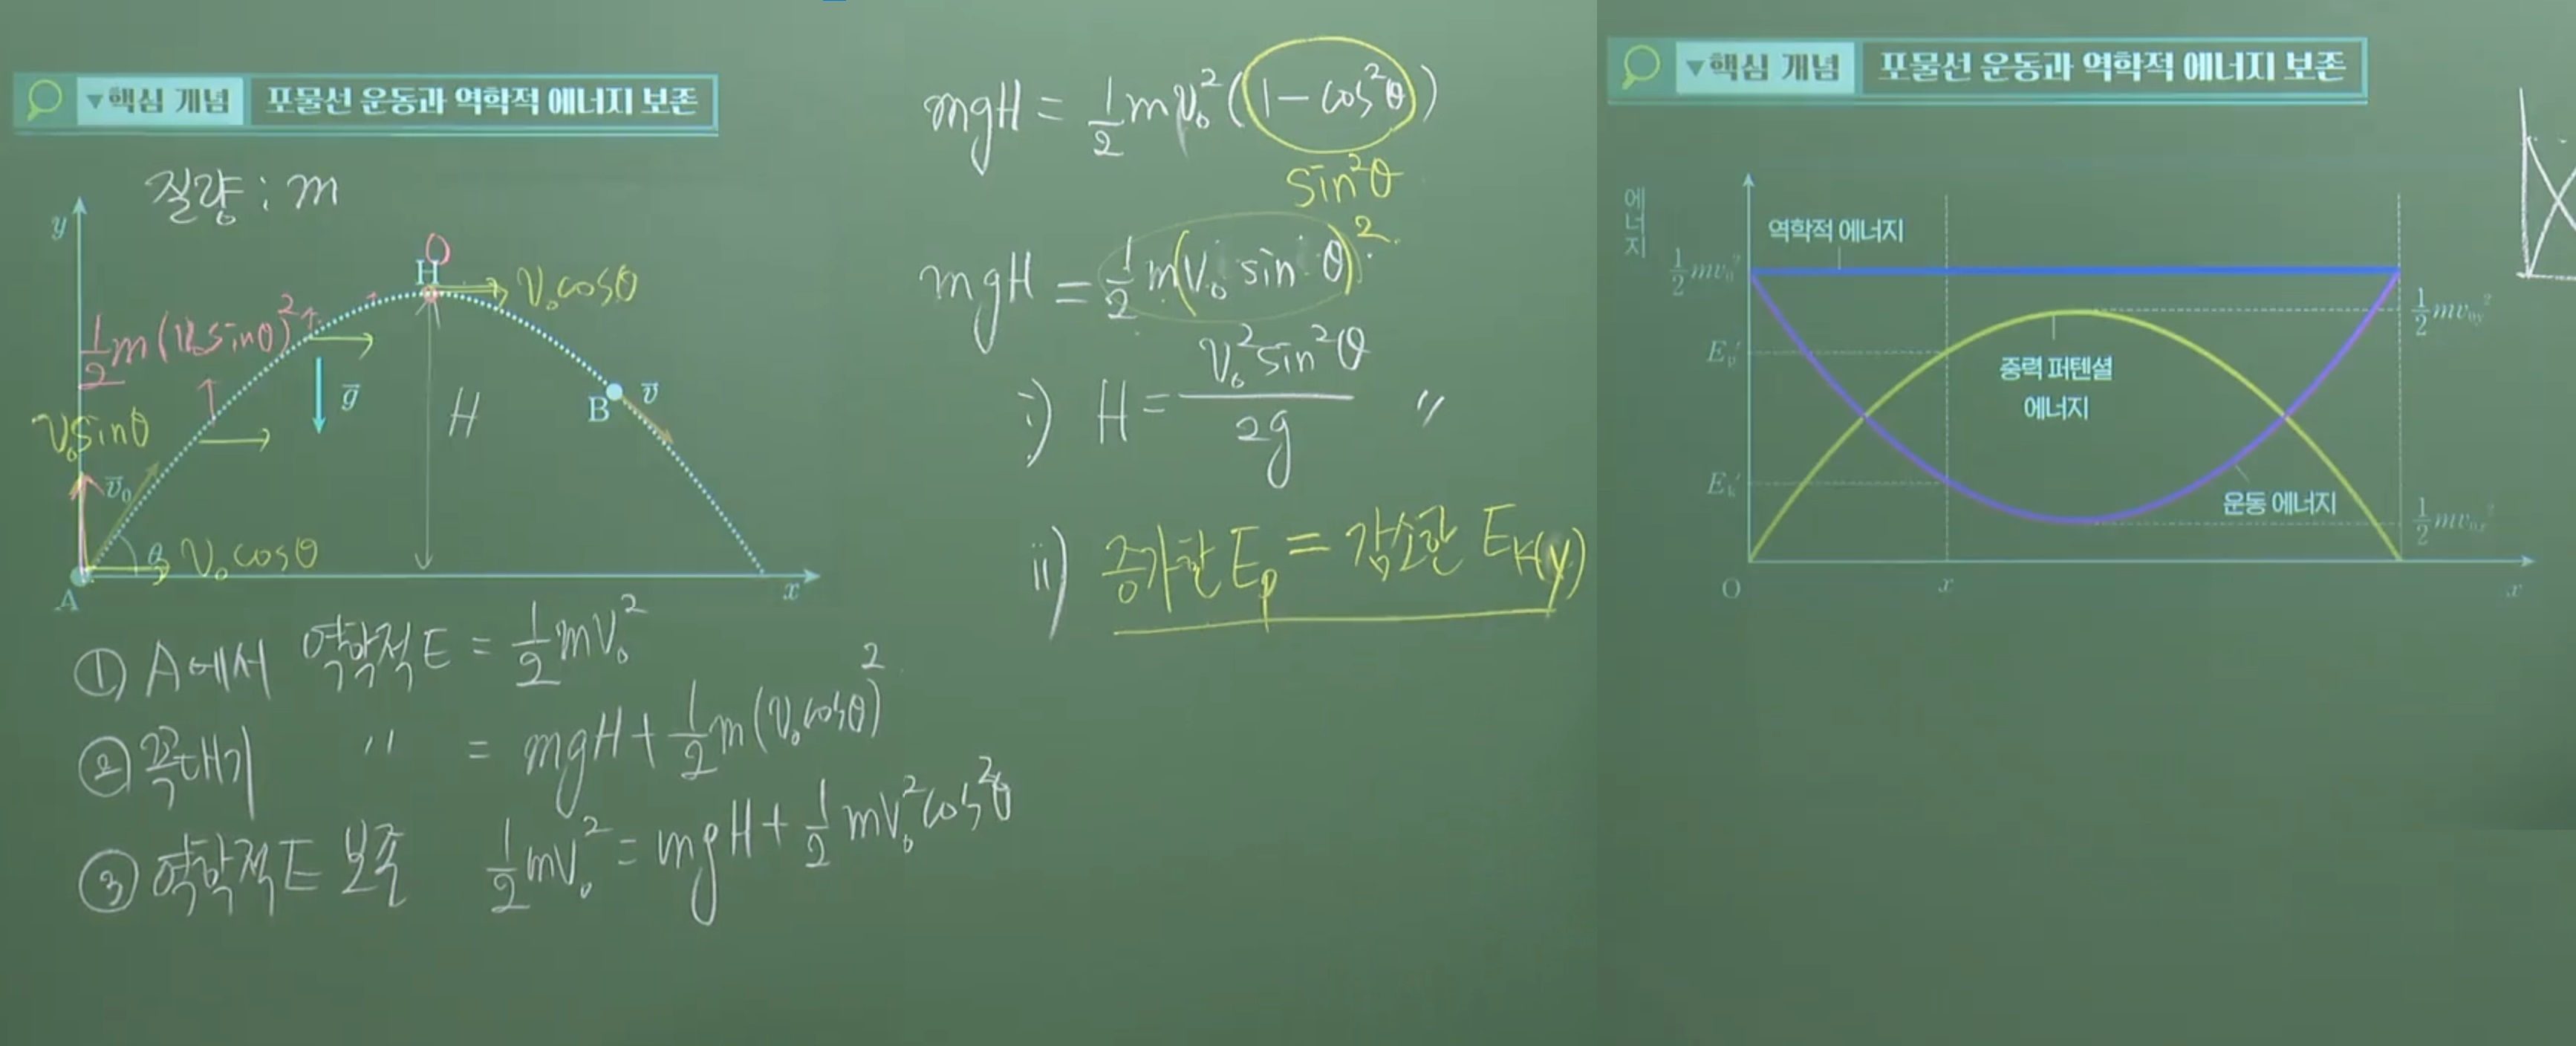 ▼핵심 개념 포물선 운동과 역학적 에너지 보존
질량 : m
y
O
H
V₀cosθ
½m(V₀sinθ)²
g
H
B
v
V₀sinθ
v₀
θ
V₀cosθ
A
x
① A에서 역학적E = ½mV₀²
② 꼭대기 〃 = mgH + ½m(V₀cosθ)²
③ 역학적E 보존 ½mV₀² = mgH + ½mV₀²cos²θ
mgH = ½mV₀²(1 − cos²θ)
sin²θ
mgH = ½m(V₀ sinθ)²
i) H = V₀²sin²θ / 2g 〃
ii) 증가한 Eₚ = 감소한 E_K(y)
▼핵심 개념 포물선 운동과 역학적 에너지 보존
에너지
역학적 에너지
½mv₀²
½mv₀y²
Eₚ′
중력 퍼텐셜
에너지
Eₖ′
운동 에너지
½mv₀ₓ²
O
x
x